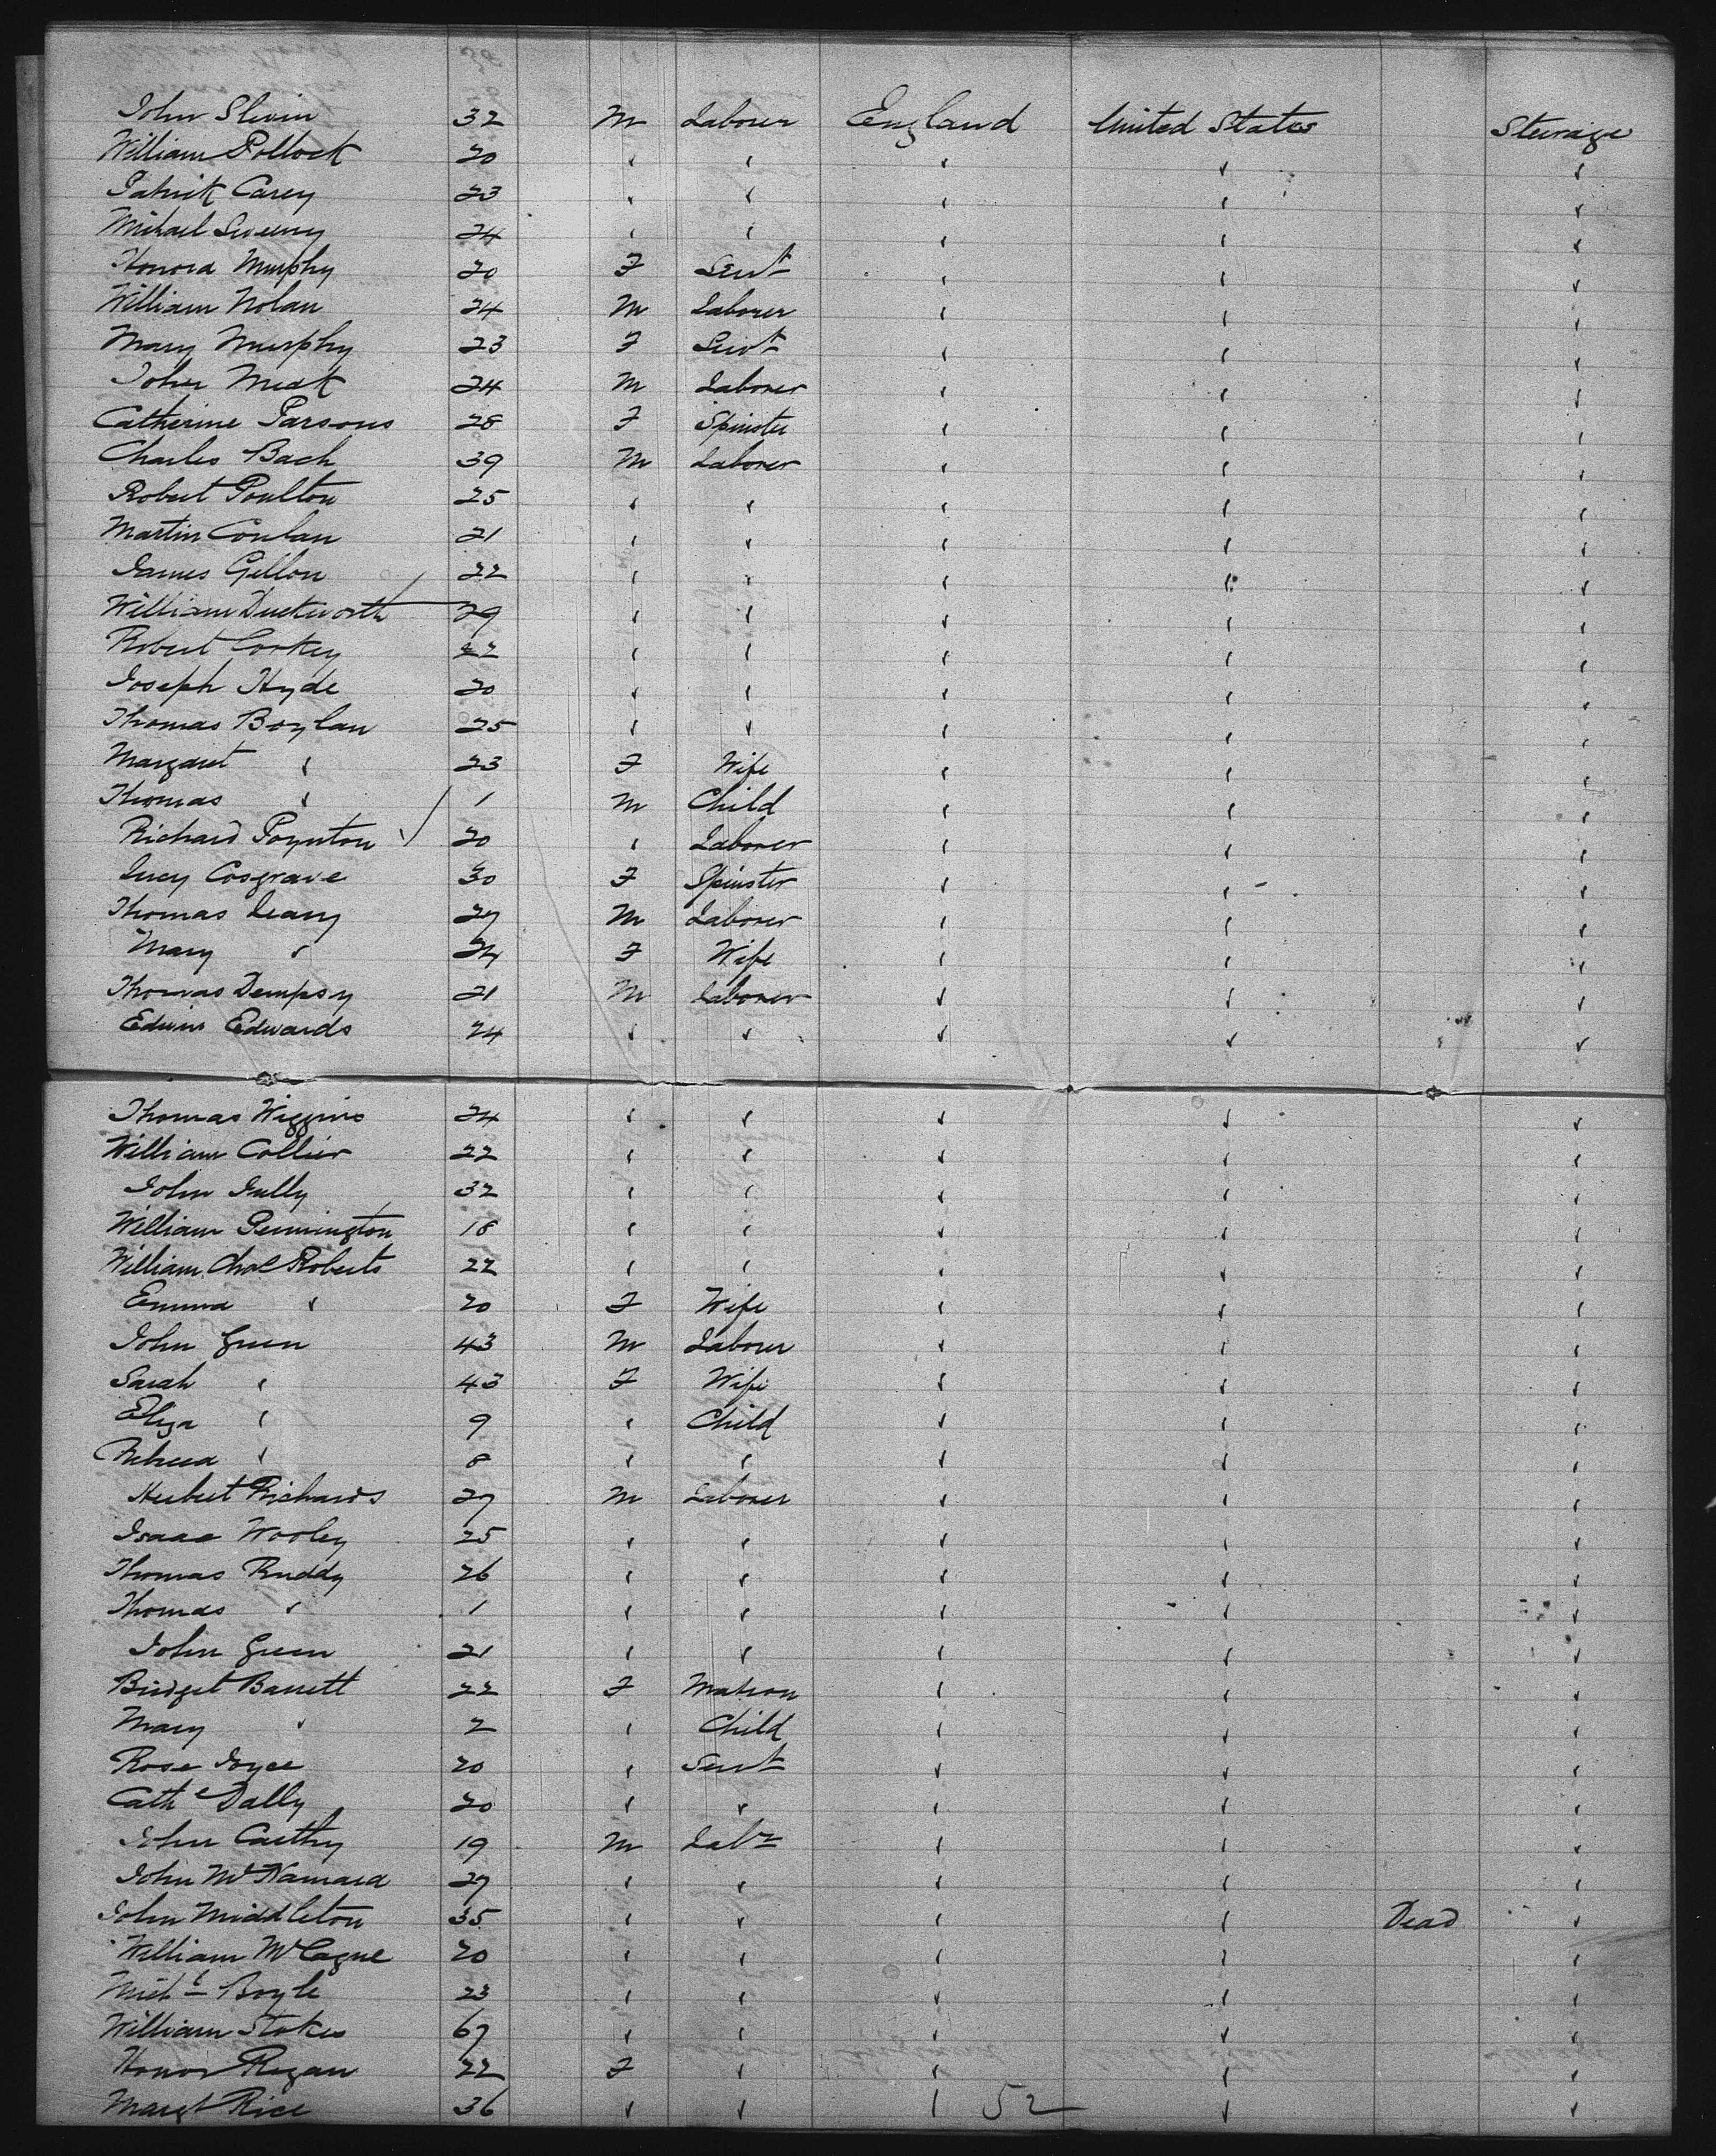 John Slevin 32 M Laborer England United States Steerage
William Pollock 20 " " " " "
Patrick Carey 23 " " " " "
Michael Sweeny 24 " " " " "
Honora Murphy 20 F Servt " " "
William Nolan 24 M Laborer " " "
Mary Murphy 23 F Servt " " "
John Meak 24 M Laborer " " "
Catherine Parsons 28 F Spinster " " "
Charles Bach 39 M Laborer " " "
Robert Poulton 25 " " " " "
Martin Conlan 21 " " " " "
James Gillon 22 " " " " "
William Duckworth 29 " " " " "
Robert Corkey 22 " " " " "
Joseph Hyde 20 " " " " "
Thomas Boylan 25 " " " " "
Margaret " 23 F Wife " " "
Thomas " 1 M Child " " "
Richard Poynton 20 " Laborer " " "
Lucy Cosgrave 30 F Spinster " " "
Thomas Leary 27 M Laborer " " "
Mary " 24 F Wife " " "
Thomas Dempsy 21 M Laborer " " "
Edwin Edwards 24 " " " " "
Thomas Wiggins 24 " " " " "
William Collier 22 " " " " "
John 32 " " " " "
William Pennington 18 " " " " "
William Chas Roberts 22 " " " " "
Emma " 20 F Wife " " "
John Green 43 M Laborer " " "
Sarah " 43 F Wife " " "
Eliza " 9 " Child " " "
" 8 " " " " "
Herbert Richards 27 M Laborer " " "
Isaac Wooley 25 " " " " "
Thomas Ruddy 26 " " " " "
Thomas " 1 " " " " "
John Green 21 " " " " "
Bridget Barrett 22 F Matron " " "
Mary " 2 " Child " " "
Rose Joyce 20 " Servt " " "
Cathe Dally 20 " " " " "
John Carthy 19 M Labr " " "
John McNamara 27 " " " " "
John Middleton 35 " " " " Dead "
William McCague 20 " " " " "
Michl Boyle 23 " " " " "
William Stokes 67 " " " " "
Honor Regan 22 F " " " "
Margt Rice 36 " " " 52 " "